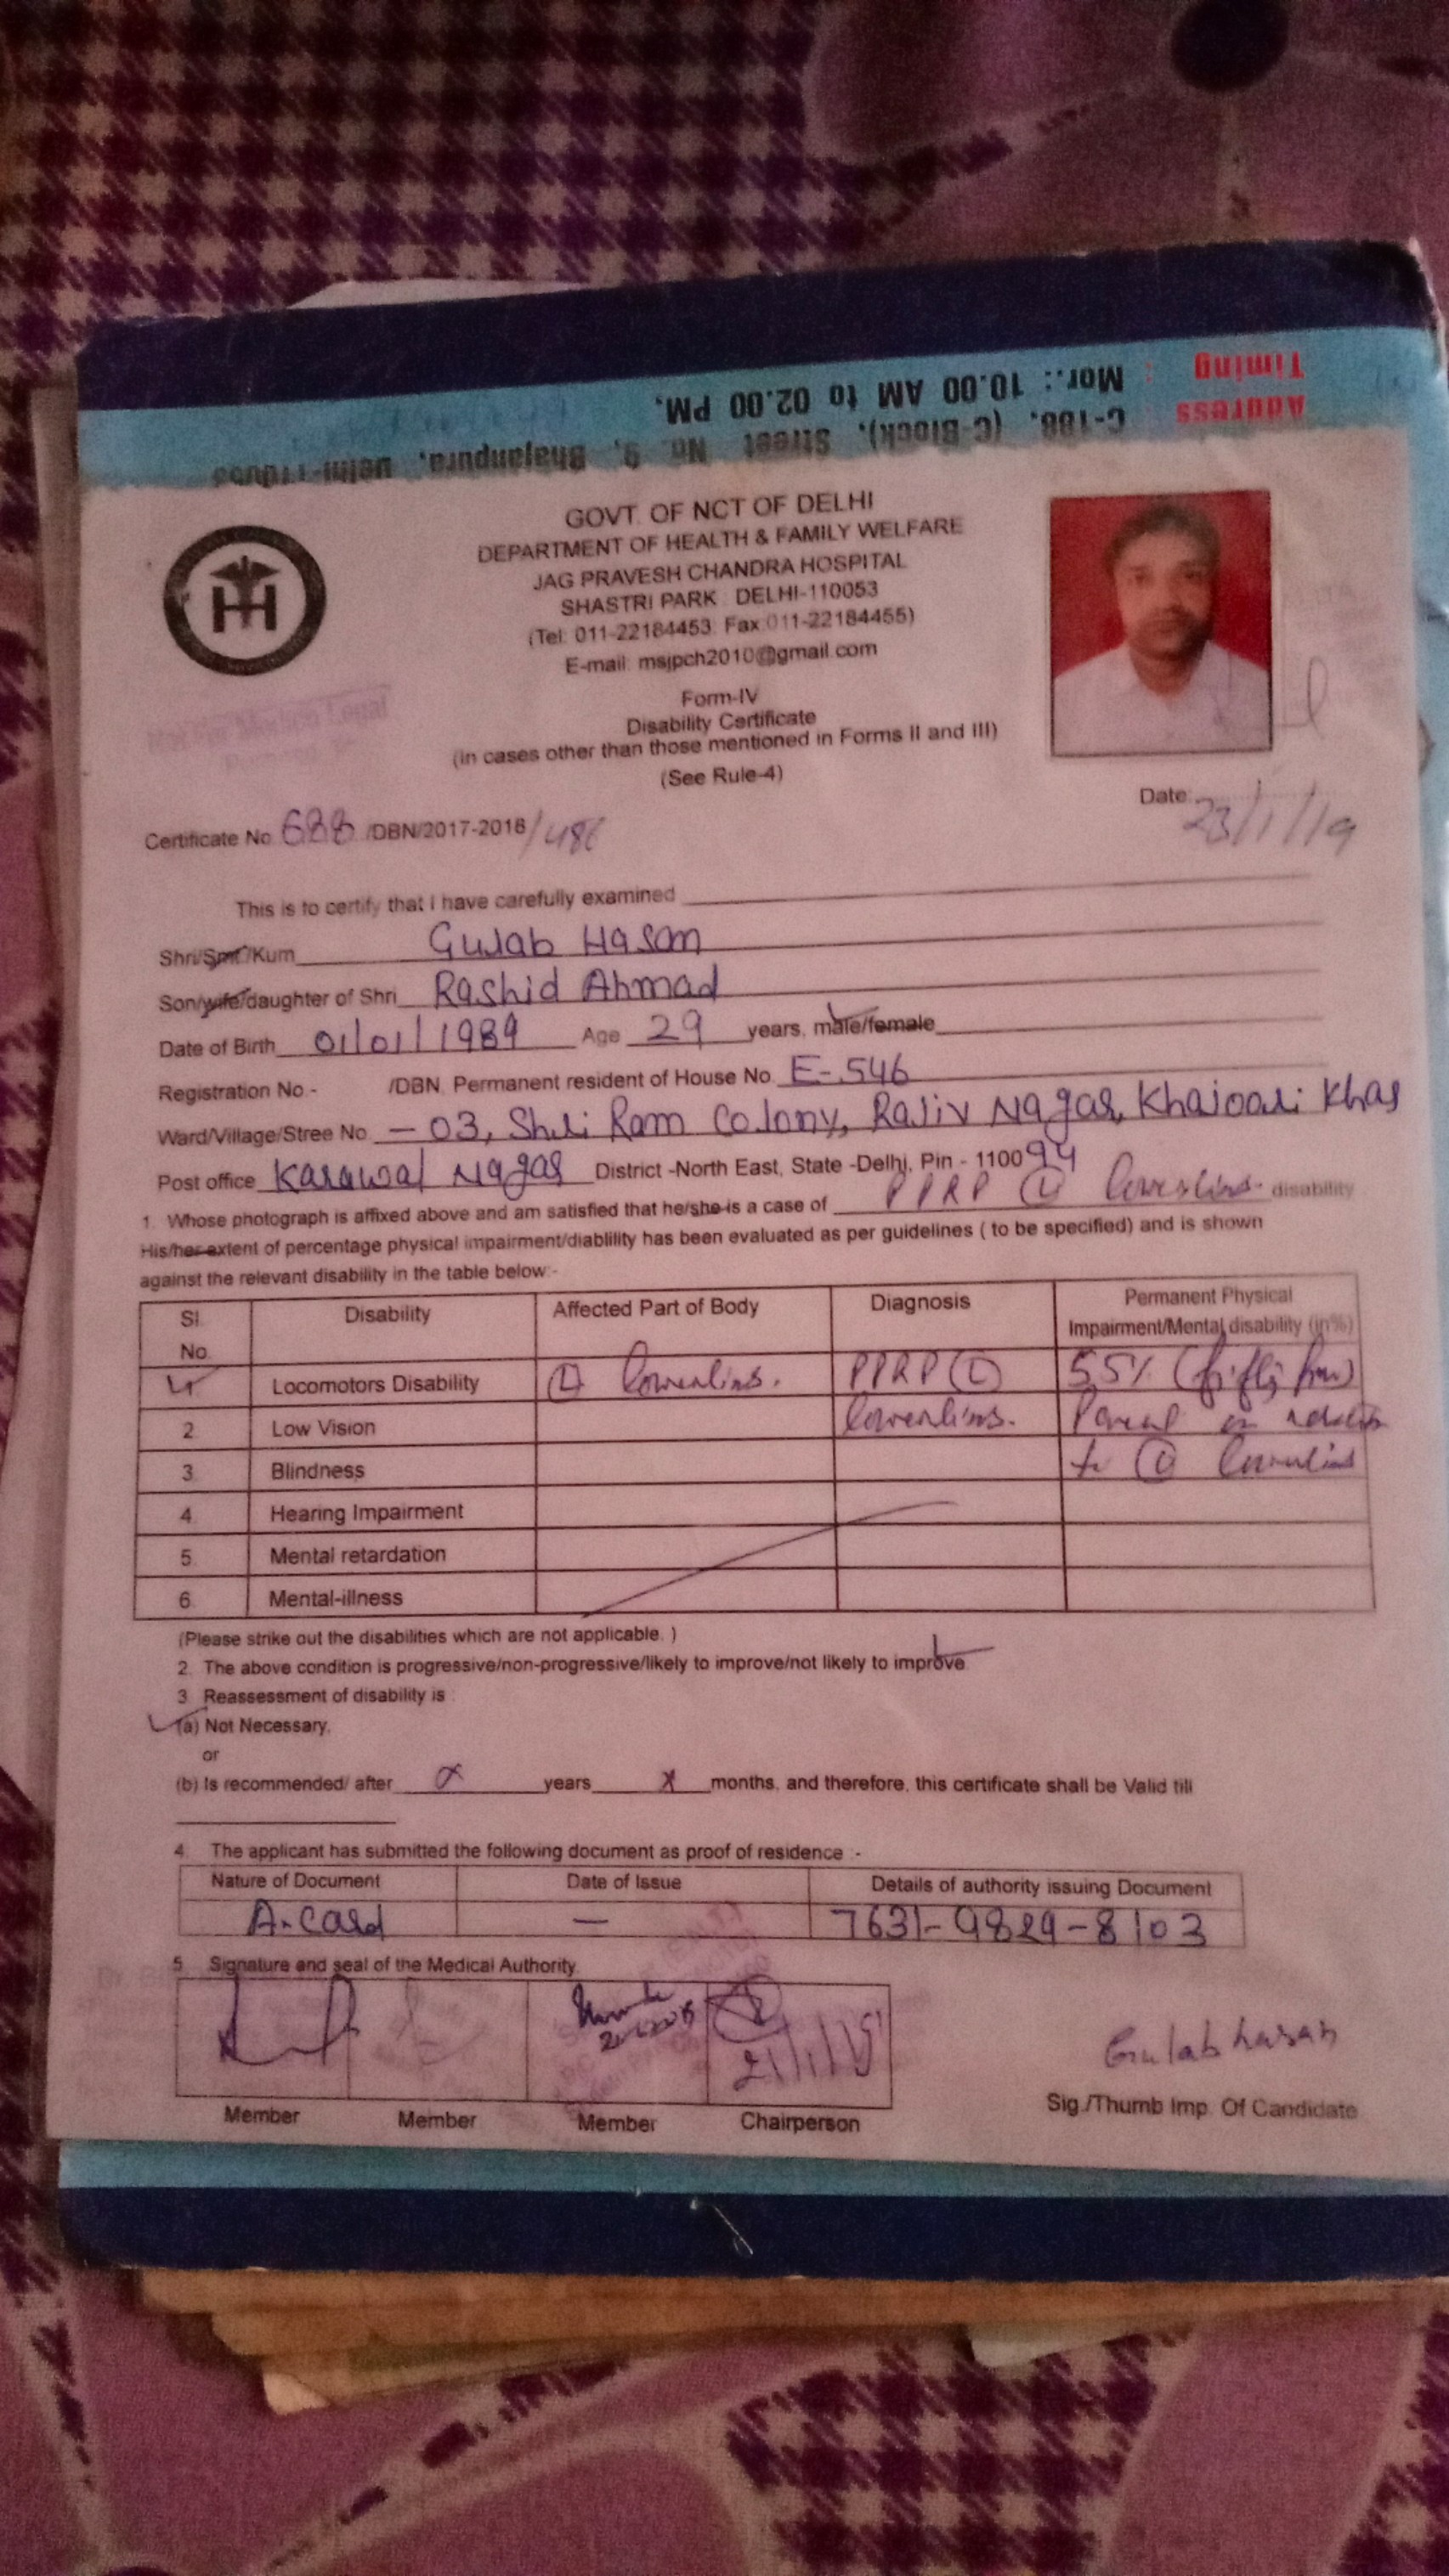 Timing : Mor.: 10.00 AM to 02.00 PM.
Address : C-188, (C-Block), Street No. 9, Bhajanpura, Delhi-110053
GOVT. OF NCT OF DELHI
DEPARTMENT OF HEALTH & FAMILY WELFARE
JAG PRAVESH CHANDRA HOSPITAL
SHASTRI PARK DELHI-110053
(Tel: 011-22184453: Fax:011-22184455)
E-mail: msjpch2010@gmail.com
Form-IV
Disability Certificate
(in cases other than those mentioned in Forms II and III)
(See Rule-4)
Not For Medico Legal
Date: 23/1/19
Certificate No 688 /DBN/2017-2018/486
This is to certify that I have carefully examined
Shri/Smt/Kum Gulab Hasan
Son/wife/daughter of Shri Rashid Ahmad
Date of Birth 01/01/1989 Age 29 years, male/female
Registration No.- /DBN. Permanent resident of House No. E-546
Ward/Village/Stree No. -03, Shri Ram Colony, Rajiv Nagar, Khajoori Khas
Post office Karawal Nagar District -North East, State -Delhi, Pin - 110094
1. Whose photograph is affixed above and am satisfied that he/she is a case of PPRP (L) lowerlimb. disability
His/her extent of percentage physical impairment/diablility has been evaluated as per guidelines ( to be specified) and is shown
against the relevant disability in the table below:-
Sl. No. Disability Affected Part of Body Diagnosis Permanent Physical Impairment/Mental disability (in%)
1 Locomotors Disability (L) lowerlimb. PPRP (L) lowerlimb. 55% (fifty five) Percent in relation to (L) lowerlimb
2. Low Vision
3. Blindness
4. Hearing Impairment
5. Mental retardation
6. Mental-illness
(Please strike out the disabilities which are not applicable. )
2. The above condition is progressive/non-progressive/likely to improve/not likely to improve.
3. Reassessment of disability is :
(a) Not Necessary,
or
(b) Is recommended/ after x years x months, and therefore, this certificate shall be Valid till
4. The applicant has submitted the following document as proof of residence :-
Nature of Document Date of Issue Details of authority issuing Document
A. Card — 7631-9829-8103
5. Signature and seal of the Medical Authority.
Member Member Member Chairperson
Gulab hasan
Sig./Thumb Imp. Of Candidate